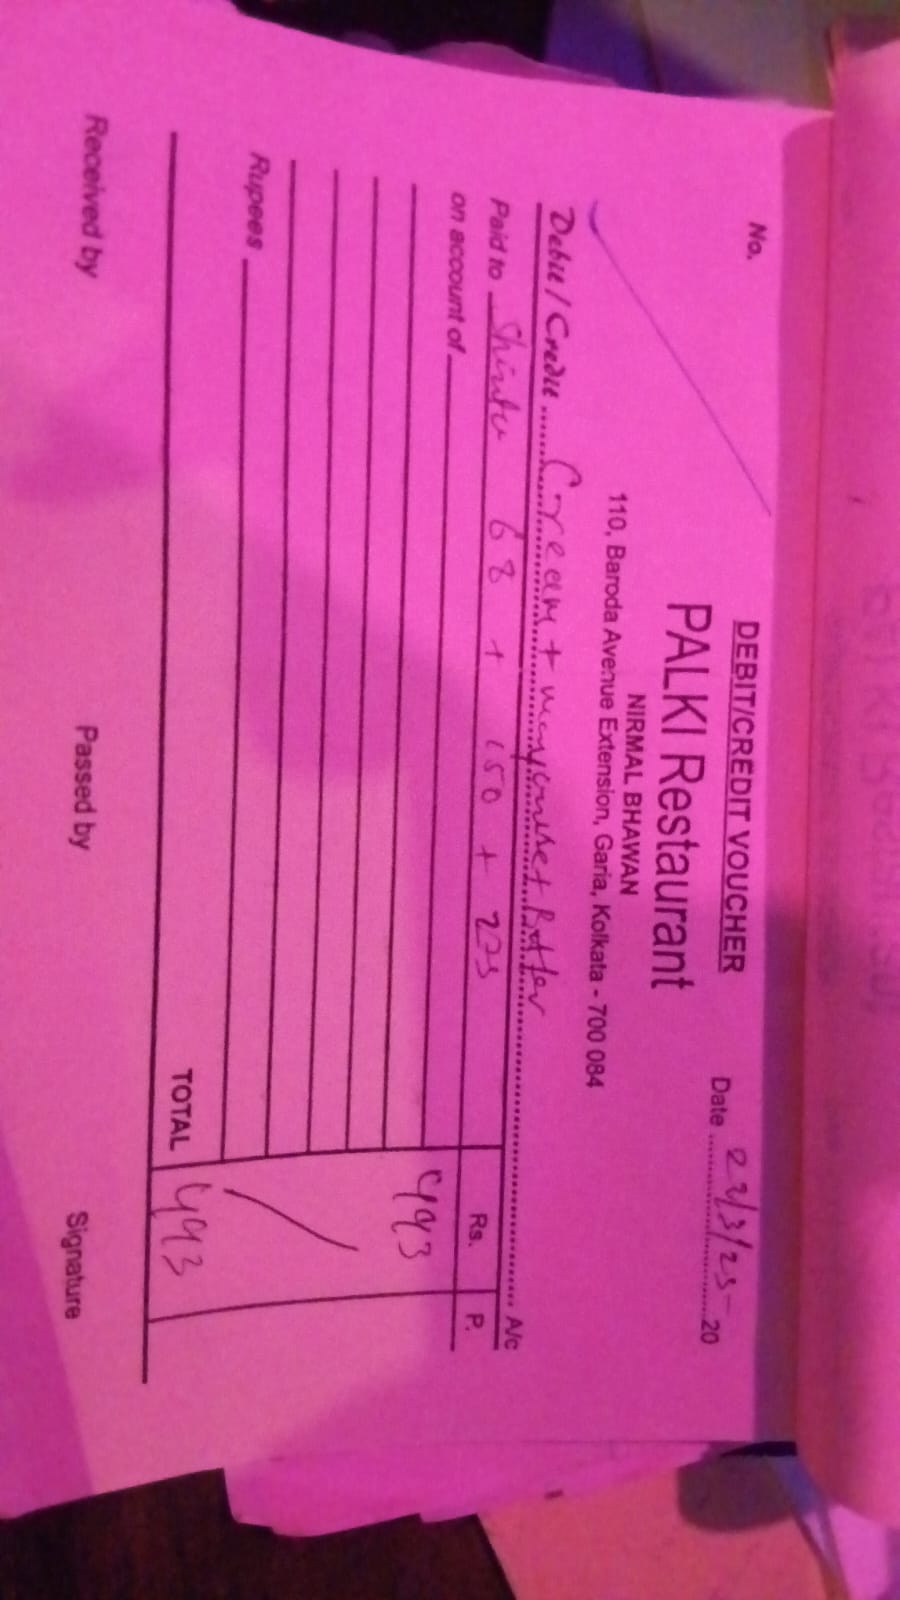 DEBIT/CREDIT VOUCHER
No.
Date 22/3/25 20
PALKI Restaurant
NIRMAL BHAWAN
110, Baroda Avenue Extension, Garia, Kolkata - 700 084
Debit / Credit Cream + + Butter A/c
Paid to 68 + 150 + 275 Rs. P.
on account of 493
Rupees
TOTAL 493
Received by Passed by Signature